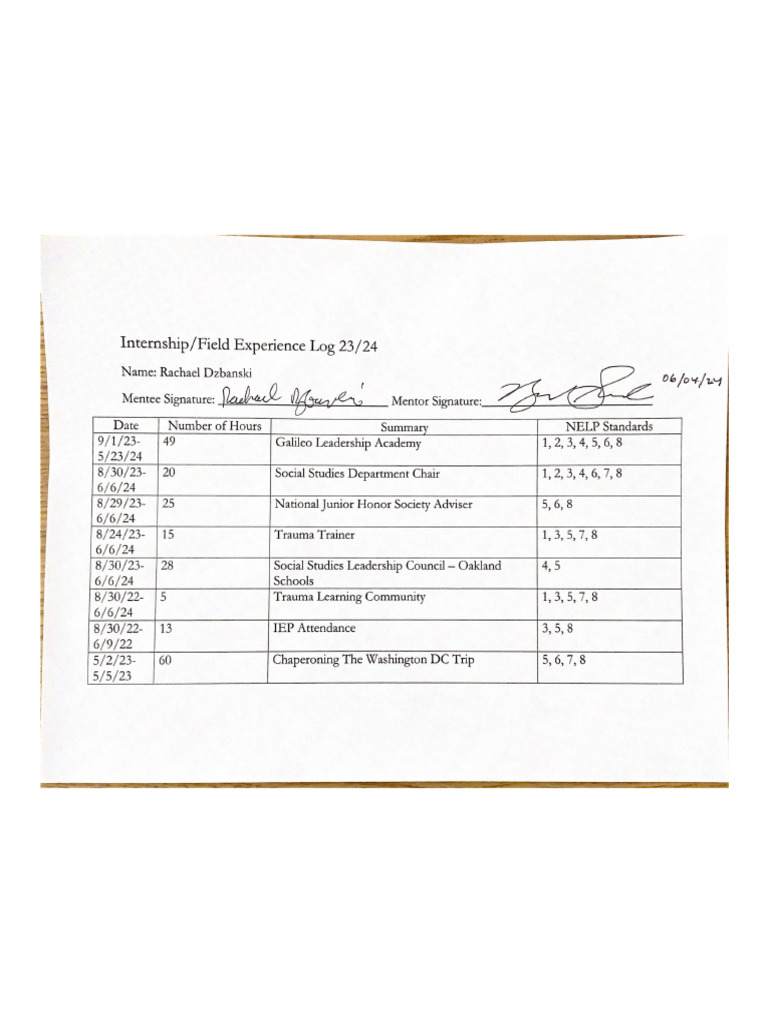 Internship/Field Experience Log 23/24
Name: Rachael Dzbanski
Mentee Signature: Rachael Mentor Signature: 06/04/24
Date Number of Hours Summary NELP Standards
9/1/23- 49 Galileo Leadership Academy 1, 2, 3, 4, 5, 6, 8
5/23/24
8/30/23- 20 Social Studies Department Chair 1, 2, 3, 4, 6, 7, 8
6/6/24
8/29/23- 25 National Junior Honor Society Adviser 5, 6, 8
6/6/24
8/24/23- 15 Trauma Trainer 1, 3, 5, 7, 8
6/6/24
8/30/23- 28 Social Studies Leadership Council – Oakland 4, 5
6/6/24 Schools
8/30/22- 5 Trauma Learning Community 1, 3, 5, 7, 8
6/6/24
8/30/22- 13 IEP Attendance 3, 5, 8
6/9/22
5/2/23- 60 Chaperoning The Washington DC Trip 5, 6, 7, 8
5/5/23